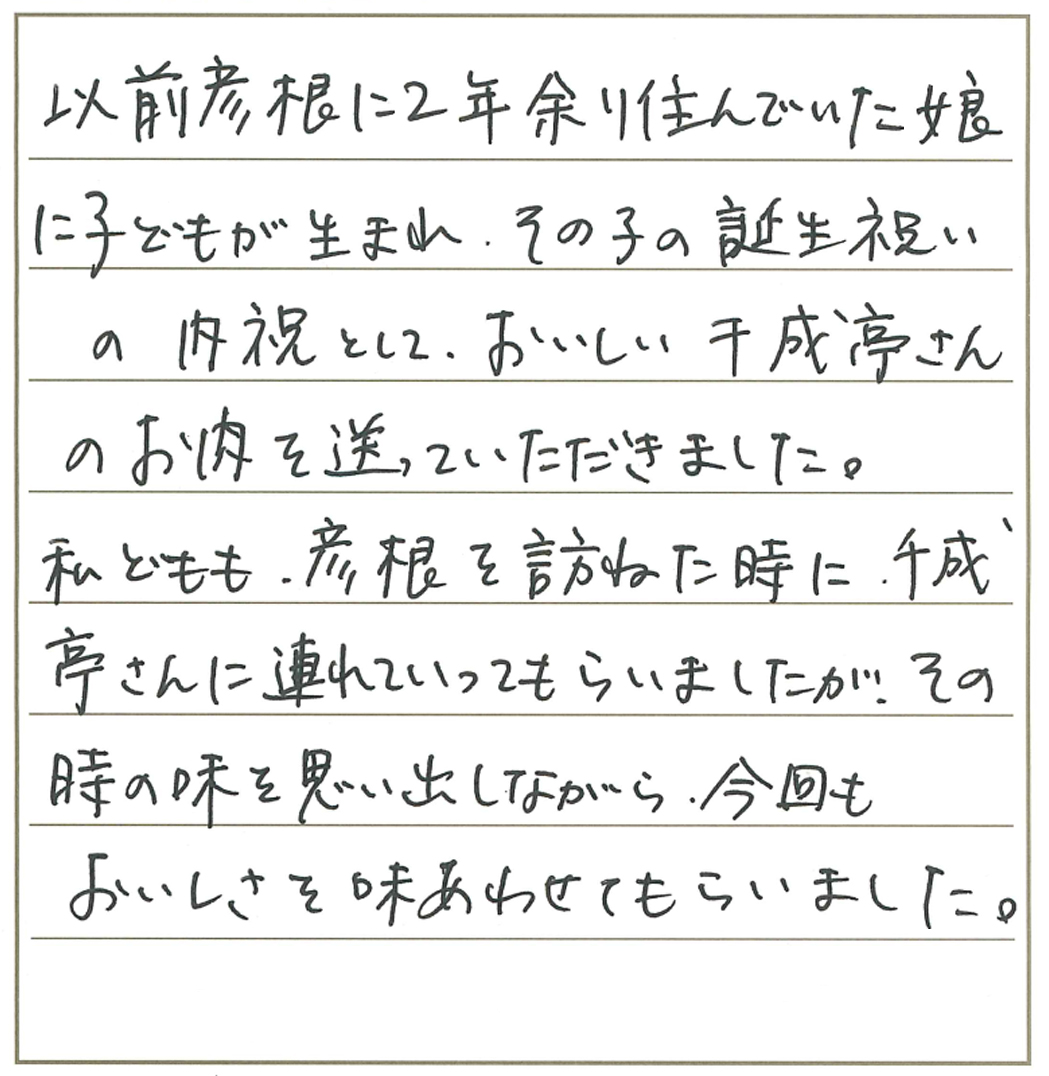 以前彦根に2年余り住んでいた娘
に子どもが生まれ、その子の誕生祝い
の内祝として、おいしい千成亭さん
のお肉を送っていただきました。
私どもも、彦根を訪ねた時に、千成
亭さんに連れていってもらいましたが、その
時の味を思い出しながら、今回も
おいしさを味あわせてもらいました。